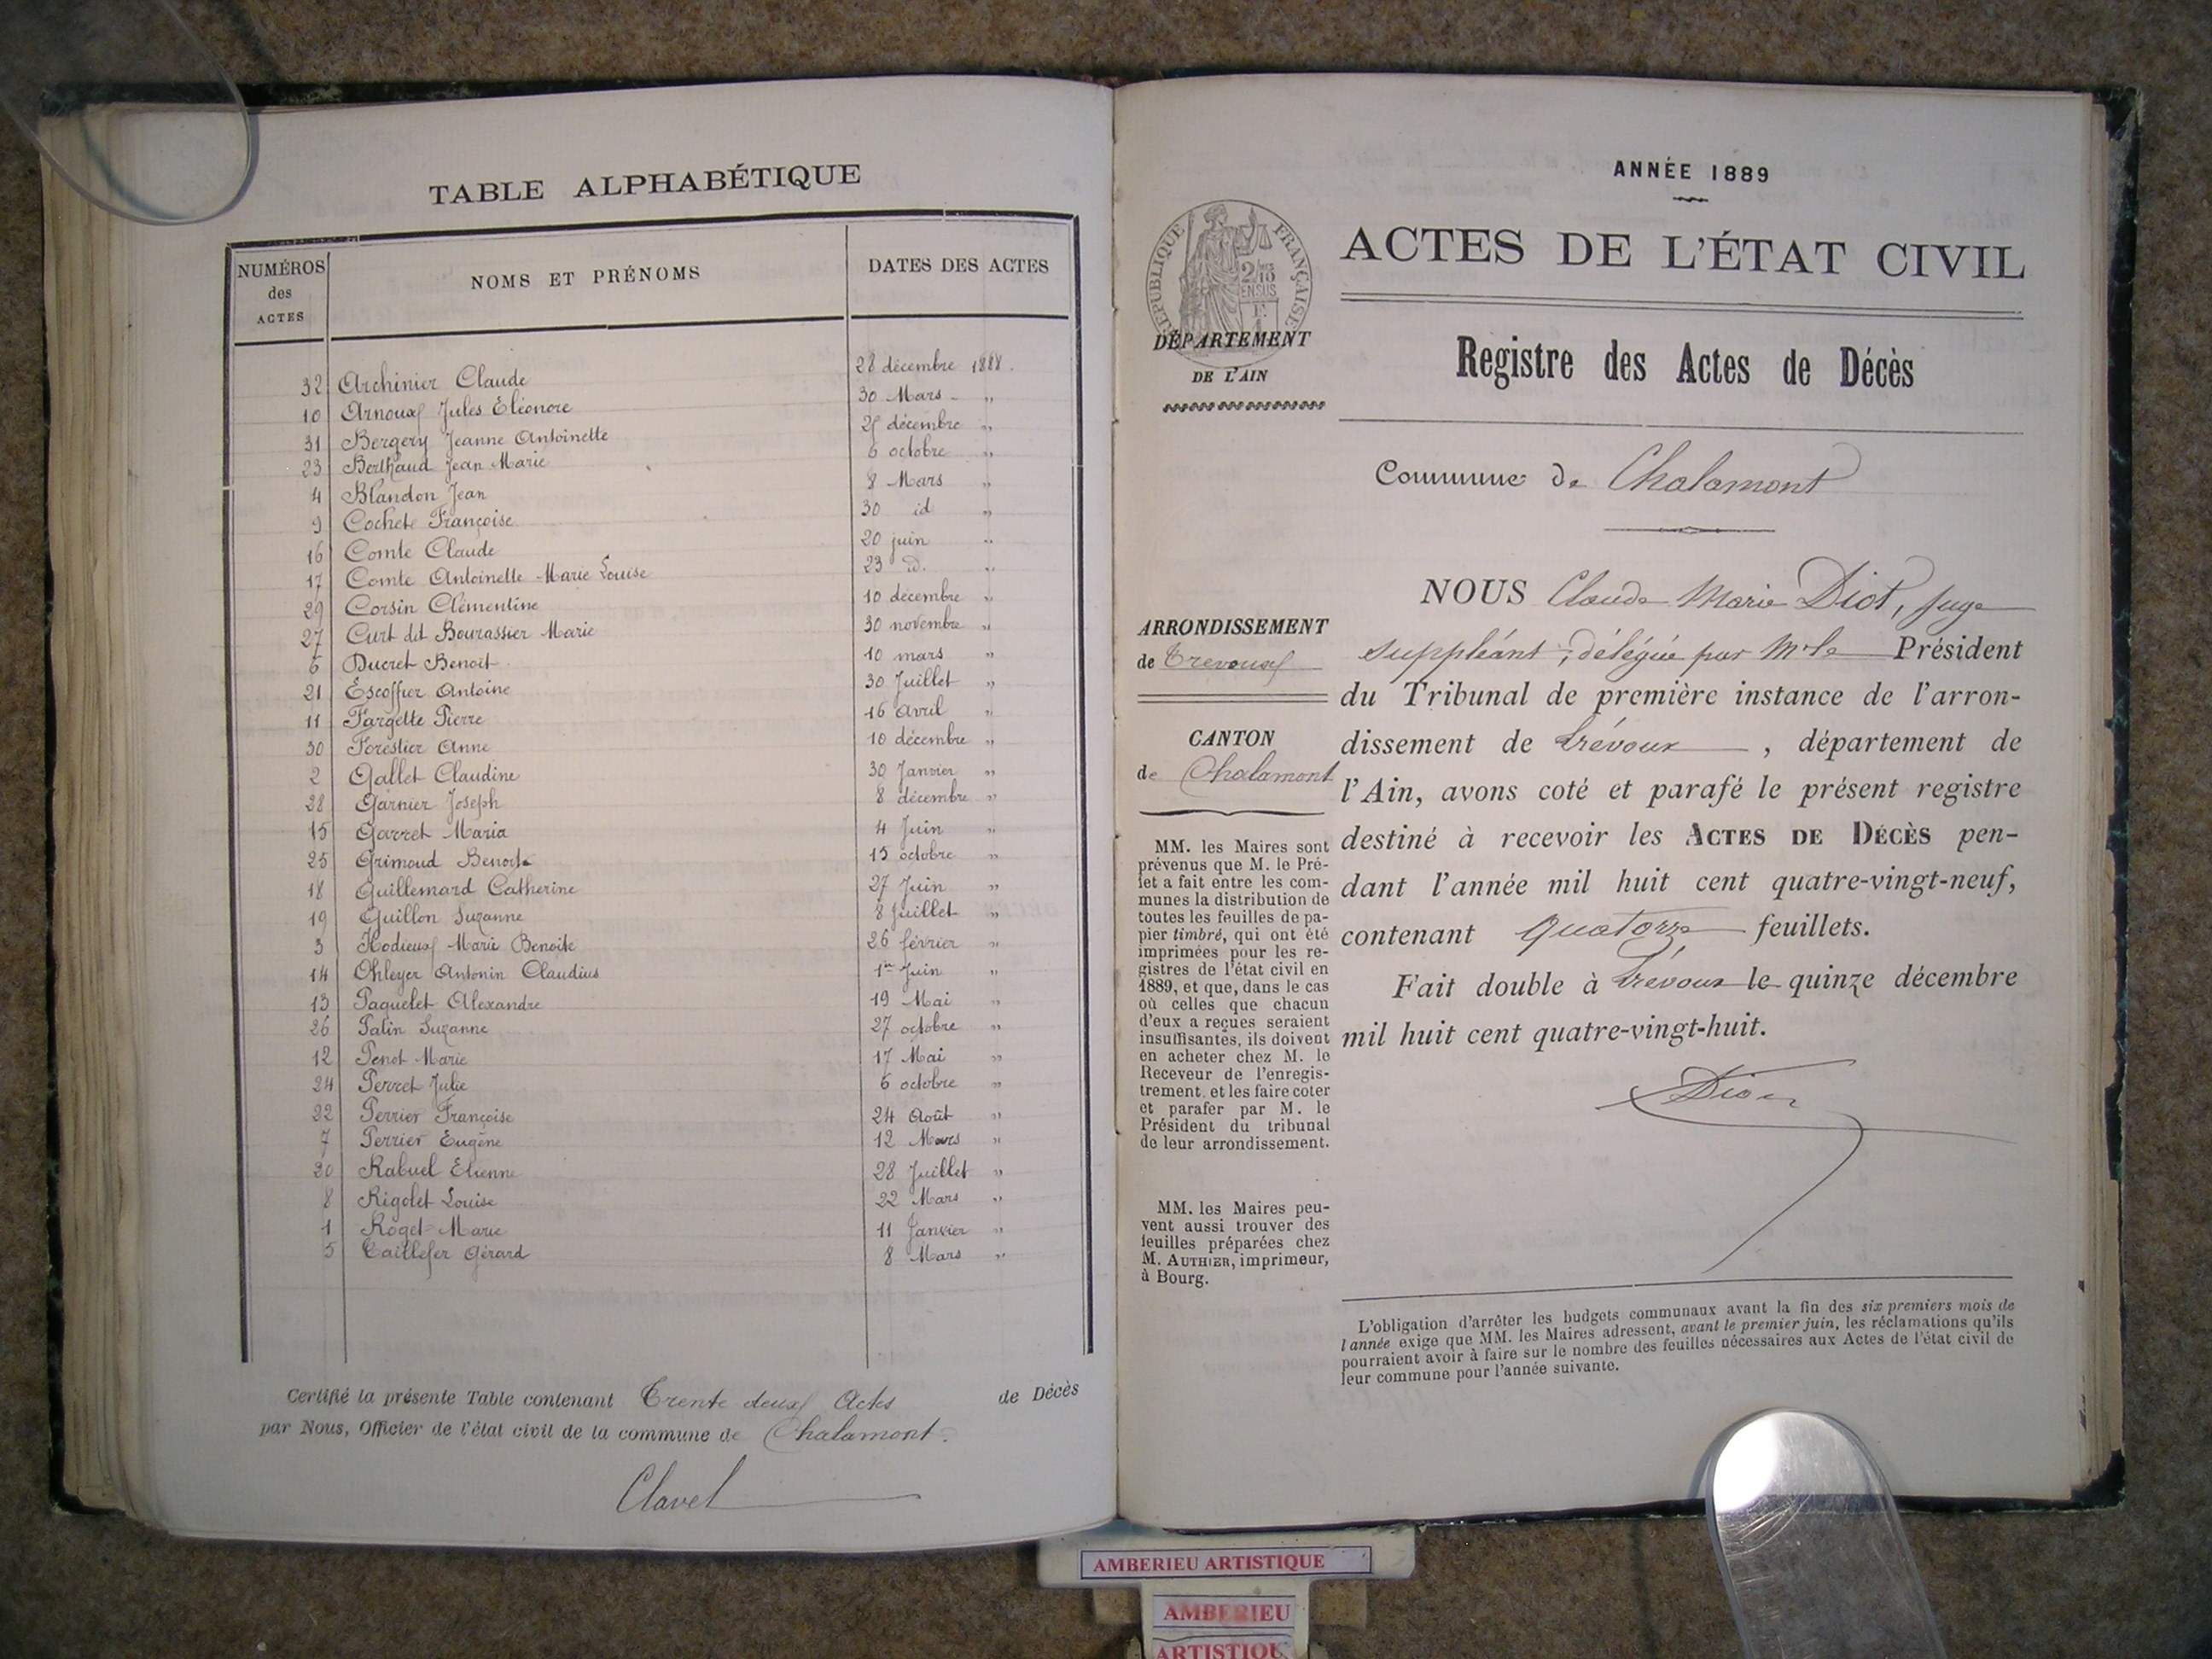 TABLE ALPHABÉTIQUE
NUMÉROS des ACTES
NOMS ET PRÉNOMS
DATES DES ACTES
32 Archinier Claude 28 décembre 1888.
10 Arnoux Jules Eléonore 30 Mars - "
31 Bergery Jeanne Antoinette décembre "
23 Berthaud Jean Marie 6 octobre "
4 Blandon Jean 8 Mars "
9 Cochet Françoise 30 id "
16 Comte Claude 20 juin "
17 Comte Antoinette Marie Louise 23 id. "
29 Corsin Clémentine 10 décembre "
27 Curt dit Bourassier Marie 30 novembre "
6 Ducret Benoit 10 mars "
21 Escoffier Antoine 30 Juillet "
11 Fargette Pierre 16 Avril "
30 Forestier Anne 10 décembre "
2 Gallet Claudine 30 Janvier "
28 Garnier Joseph 8 décembre "
15 Garret Maria 4 Juin "
25 Grimoud Benoite 15 octobre "
18 Guillemard Catherine 27 Juin "
19 Guillon Suzanne 8 Juillet "
3 Hodieux Marie Benoite 26 février "
14 Ohleyer Antonin Claudius 1er Juin "
13 Paquelet Alexandre 19 Mai "
26 Patin Suzanne 27 octobre "
12 Penot Marie 17 Mai "
24 Perret Julie 6 octobre "
22 Perrier Françoise 24 Août "
7 Perrier Eugène 12 Mars "
20 Rabuel Etienne 28 Juillet "
8 Rigolet Louise 22 Mars "
1 Roget Marie 11 Janvier "
5 Taillefer Gérard 8 Mars "
Certifié la présente Table contenant Trente deux Actes de Décès
par Nous, Officier de l'état civil de la commune de Chalamont.
Clavel
ANNÉE 1889
RÉPUBLIQUE FRANÇAISE
ACTES DE L'ÉTAT CIVIL
DÉPARTEMENT
DE L'AIN
Registre des Actes de Décès
Commune de Chalamont
ARRONDISSEMENT
de Trevoux
CANTON
de Chalamont
MM. les Maires sont
prévenus que M. le Pré-
fet a fait entre les com-
munes la distribution de
toutes les feuilles de pa-
pier timbré, qui ont été
imprimées pour les re-
gistres de l'état civil en
1889, et que, dans le cas
où celles que chacun
d'eux a reçues seraient
insuffisantes, ils doivent
en acheter chez M. le
Receveur de l'enregis-
trement, et les faire coter
et parafer par M. le
Président du tribunal
de leur arrondissement.
MM. les Maires peu-
vent aussi trouver des
feuilles préparées chez
M. AUTHIER, imprimeur,
à Bourg.
NOUS Claude Marie Diot, Juge
suppléant, délégué par Mr le Président
du Tribunal de première instance de l'arron-
dissement de Trévoux, département de
l'Ain, avons coté et parafé le présent registre
destiné à recevoir les ACTES DE DÉCÈS pen-
dant l'année mil huit cent quatre-vingt-neuf,
contenant quatorze feuillets.
Fait double à Trévoux le quinze décembre
mil huit cent quatre-vingt-huit.
Diot
L'obligation d'arrêter les budgets communaux avant la fin des six premiers mois de
l'année exige que MM. les Maires adressent, avant le premier juin, les réclamations qu'ils
pourraient avoir à faire sur le nombre des feuilles nécessaires aux Actes de l'état civil de
leur commune pour l'année suivante.
AMBERIEU ARTISTIQUE
AMBERIEU
ARTISTIQU